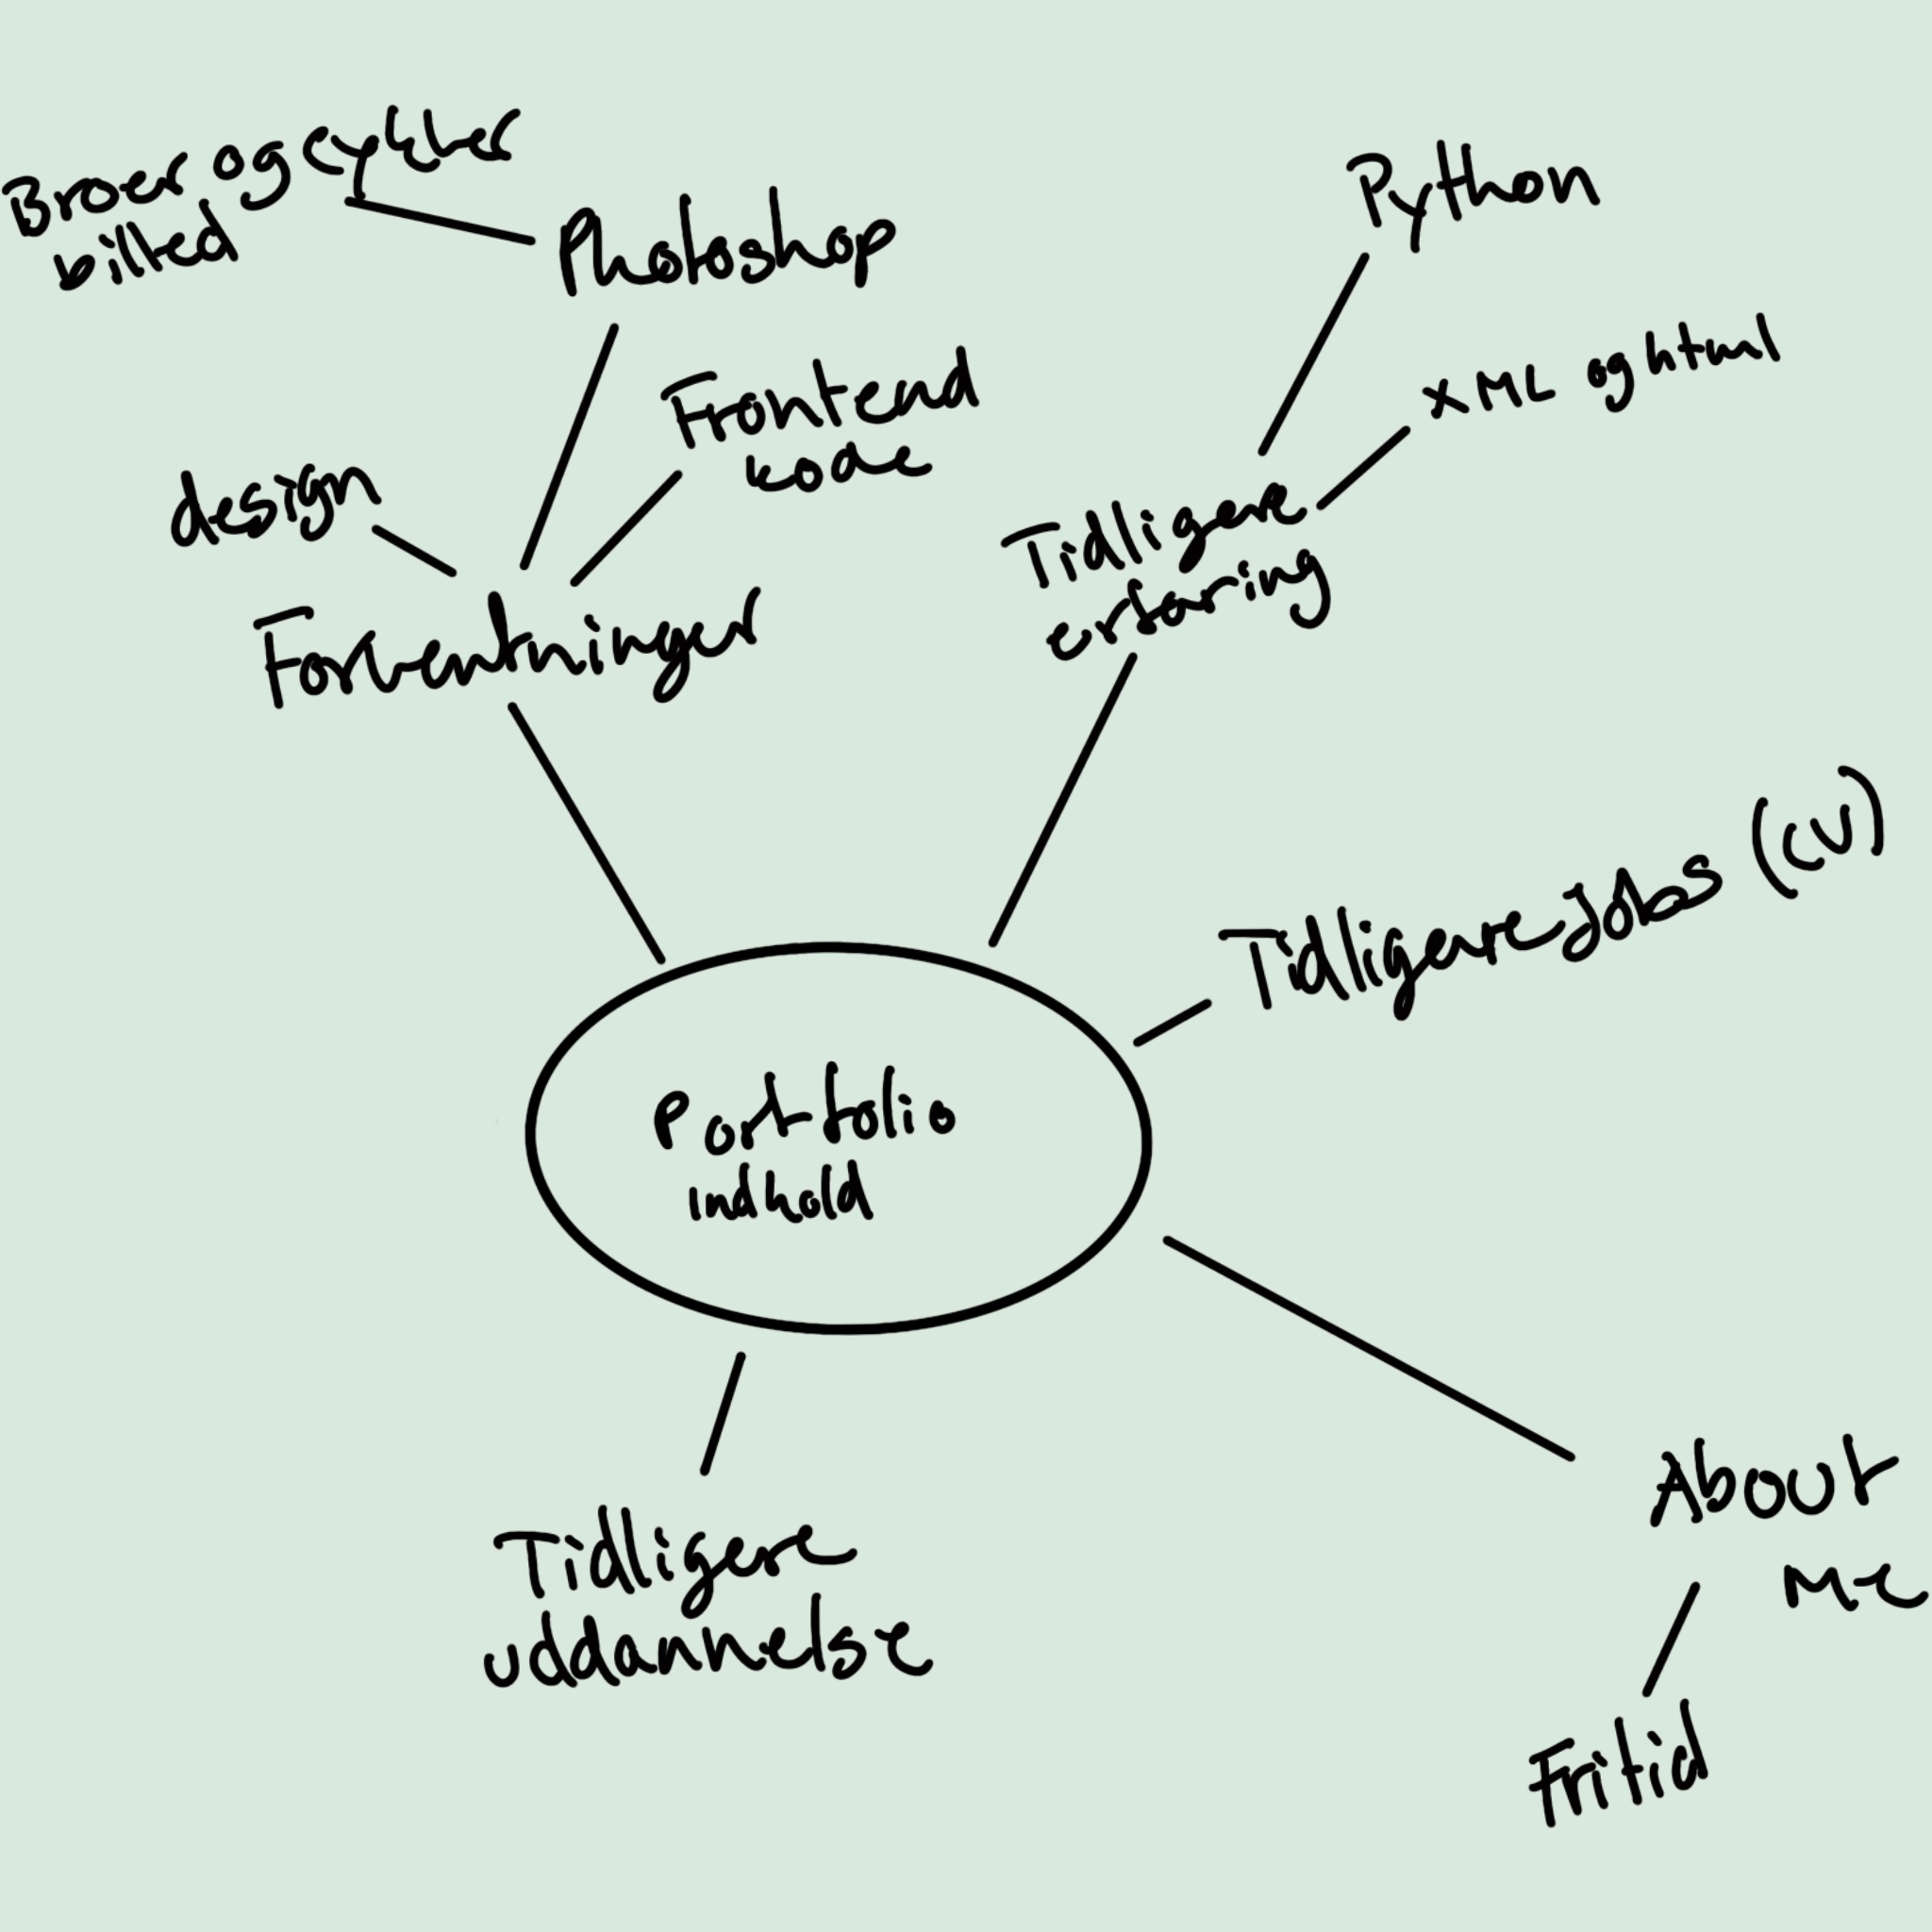 Broer og cykler
billed
Photoshop
Frontend
kode
design
Forventninger
Python
XML og html
Tidligere
erfaring
Tidligere Jobs (CV)
Portfolio
indhold
Tidligere
uddannelse
About
Me
Fritid